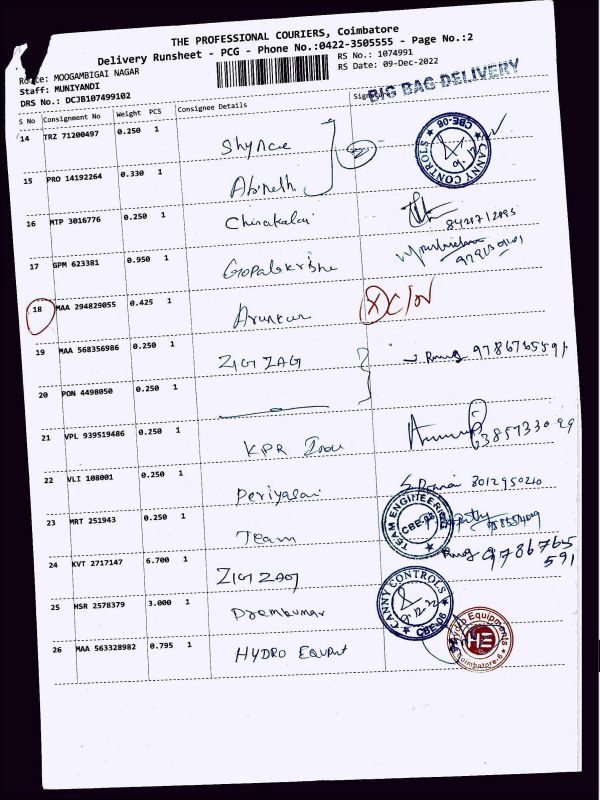 THE PROFESSIONAL COURIERS, Coimbatore
Delivery Runsheet - PCG - Phone No.:0422-3505555 - Page No.:2
Route: MOOGAMBIGAI NAGAR
RS No.: 1074991
Staff: MUNIYANDI
RS Date: 09-Dec-2022
DRS No.: DCJB107499102
BIG BAG DELIVERY
S No Consignment No Weight PCS Consignee Details
14 TRZ 71200497 0.250 1
CANNY CONTROLS CBE-06
15 PRO 14192264 0.330 1
16 MTP 3016776 0.250 1
17 GPM 623381 0.950 1 Gopalakrishn
18 MAA 294829055 0.425 1 Arunkur
19 MAA 568356986 0.250 1 ZIGZAG 9786765591
20 PON 4498050 0.250 1
21 VPL 939519486 0.250 1 KPR
22 VLI 108001 0.250 1 Periyasai 8012950210
23 MRT 251943 0.250 1 Team
TEAM ENGINEERING CBE-06
24 KVT 2717147 6.700 1 ZIGZAG 9786765
591
25 MSR 2578379 3.000 1 Premkumar
CANNY CONTROLS CBE-06
26 MAA 563328982 0.795 1 HYDRO
Hydro Equipments HE Coimbatore-6